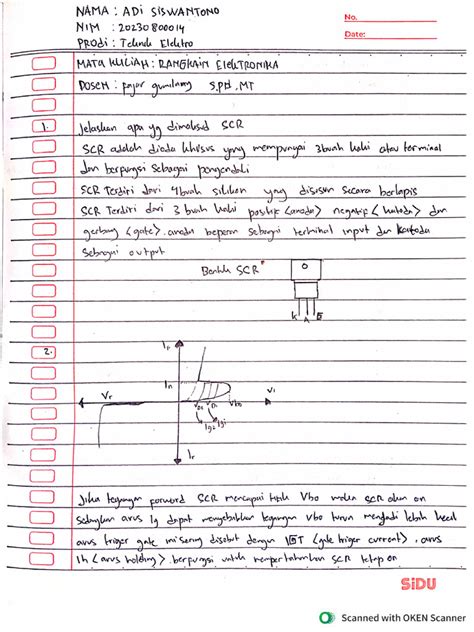 NAMA : ADI SISWANTONO
NIM : 20230800014
PRODI : Teknik Elektro
No.
Date:
MATA KULIAH : RANGKAIN ELEKTRONIKA
DOSEN : fajar gumilang S.Pd, MT
1. Jelaskan apa yg dimaksud SCR
SCR adalah dioda khusus yang mempunyai 3 buah kaki atau terminal
dan berfungsi sebagai pengendali
SCR Terdiri dari 4 buah silikon yang disusun secara berlapis
SCR Terdiri dari 3 buah kaki positif <anoda> negatif <katoda> dan
gerbang <gate>. anoda beperan sebagai terminal input dan katoda
sebagai output
Bentuk SCR
K A G
2.
Ih
Vr
Vbo
Ig2 Ig1
Ir
Jika tegangan forward SCR mencapai titik Vbo maka SCR akan on
sedangkan arus Ig dapat menyebabkan tegangan Vbo turun menjadi lebih kecil
arus triger gate mis sering disebut dengan IGT (gate triger current). arus
Ih (arus holding). berfungsi untuk mempertahankan SCR tetap on
SIDU
Scanned with OKEN Scanner